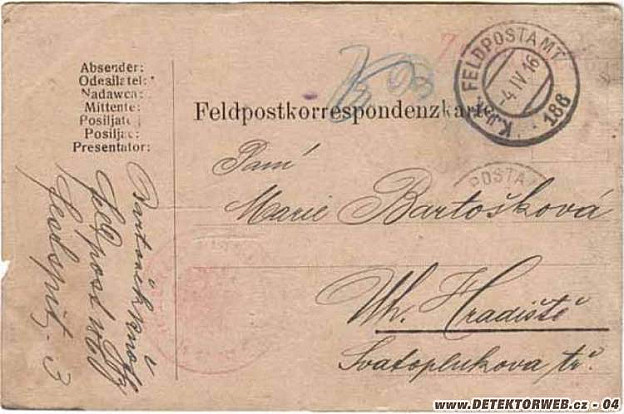 Absender:
Odesílatel:
Nadawca:
Mittente:
Posiljatelj
Posiljac:
Presentator:
Feldpostkorrespondenzkarte
K.u.K. FELDPOSTAMT
-4 IV 16
186
POSTAM
Paní
Marie Bartošková
Uh. Hradiště
Svatoplukova tř.
Feldpost
3
www.DETEKTORWEB.cz - 04